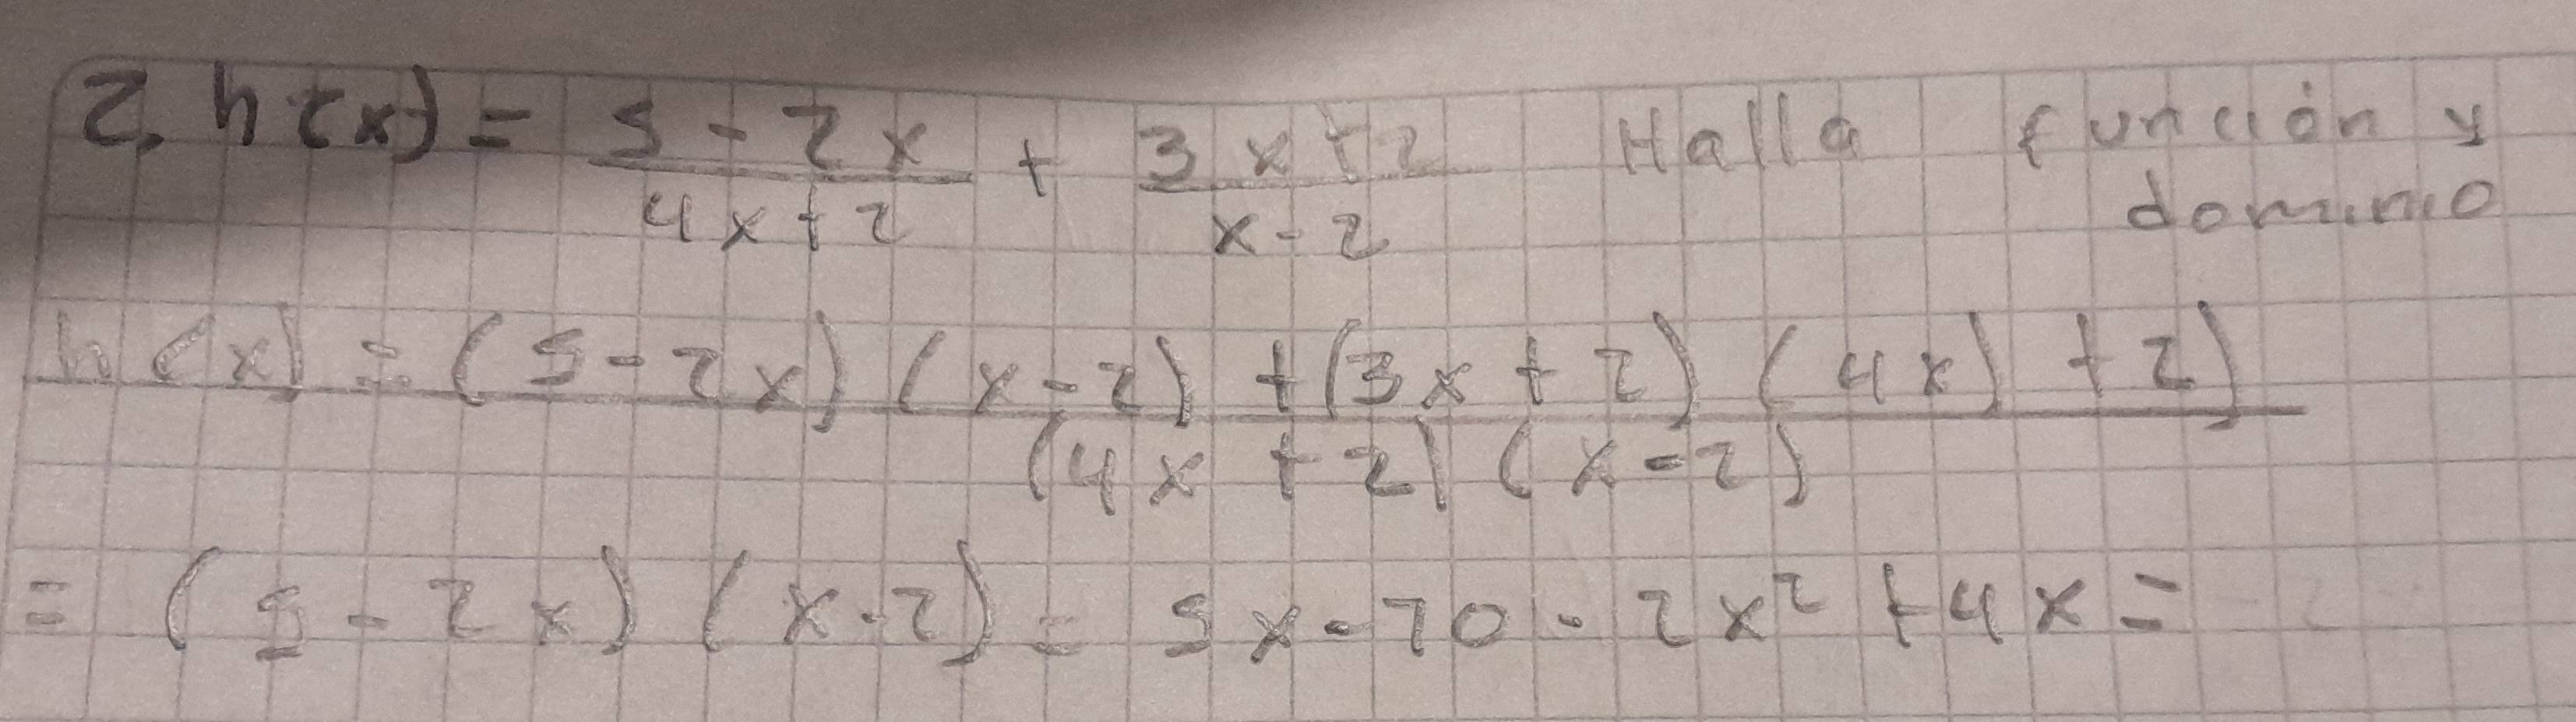 2. h(x) = 5 - 2x / 4x + 2 + 3x + 2 / x - 2 Halla función y
dominio
h(x) = (5 - 2x) (x - 2) + (3x + 2) (4x) + 2)
(4x + 2) (x - 2)
= (5 - 2x) (x - 2) = 5x - 10 - 2x² + 4x =